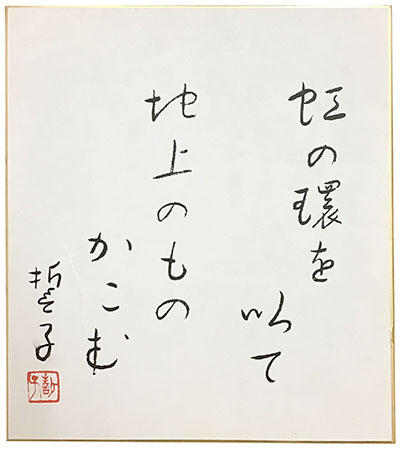 虹の環を
以て
地上のもの
かこむ
誓子
誓子